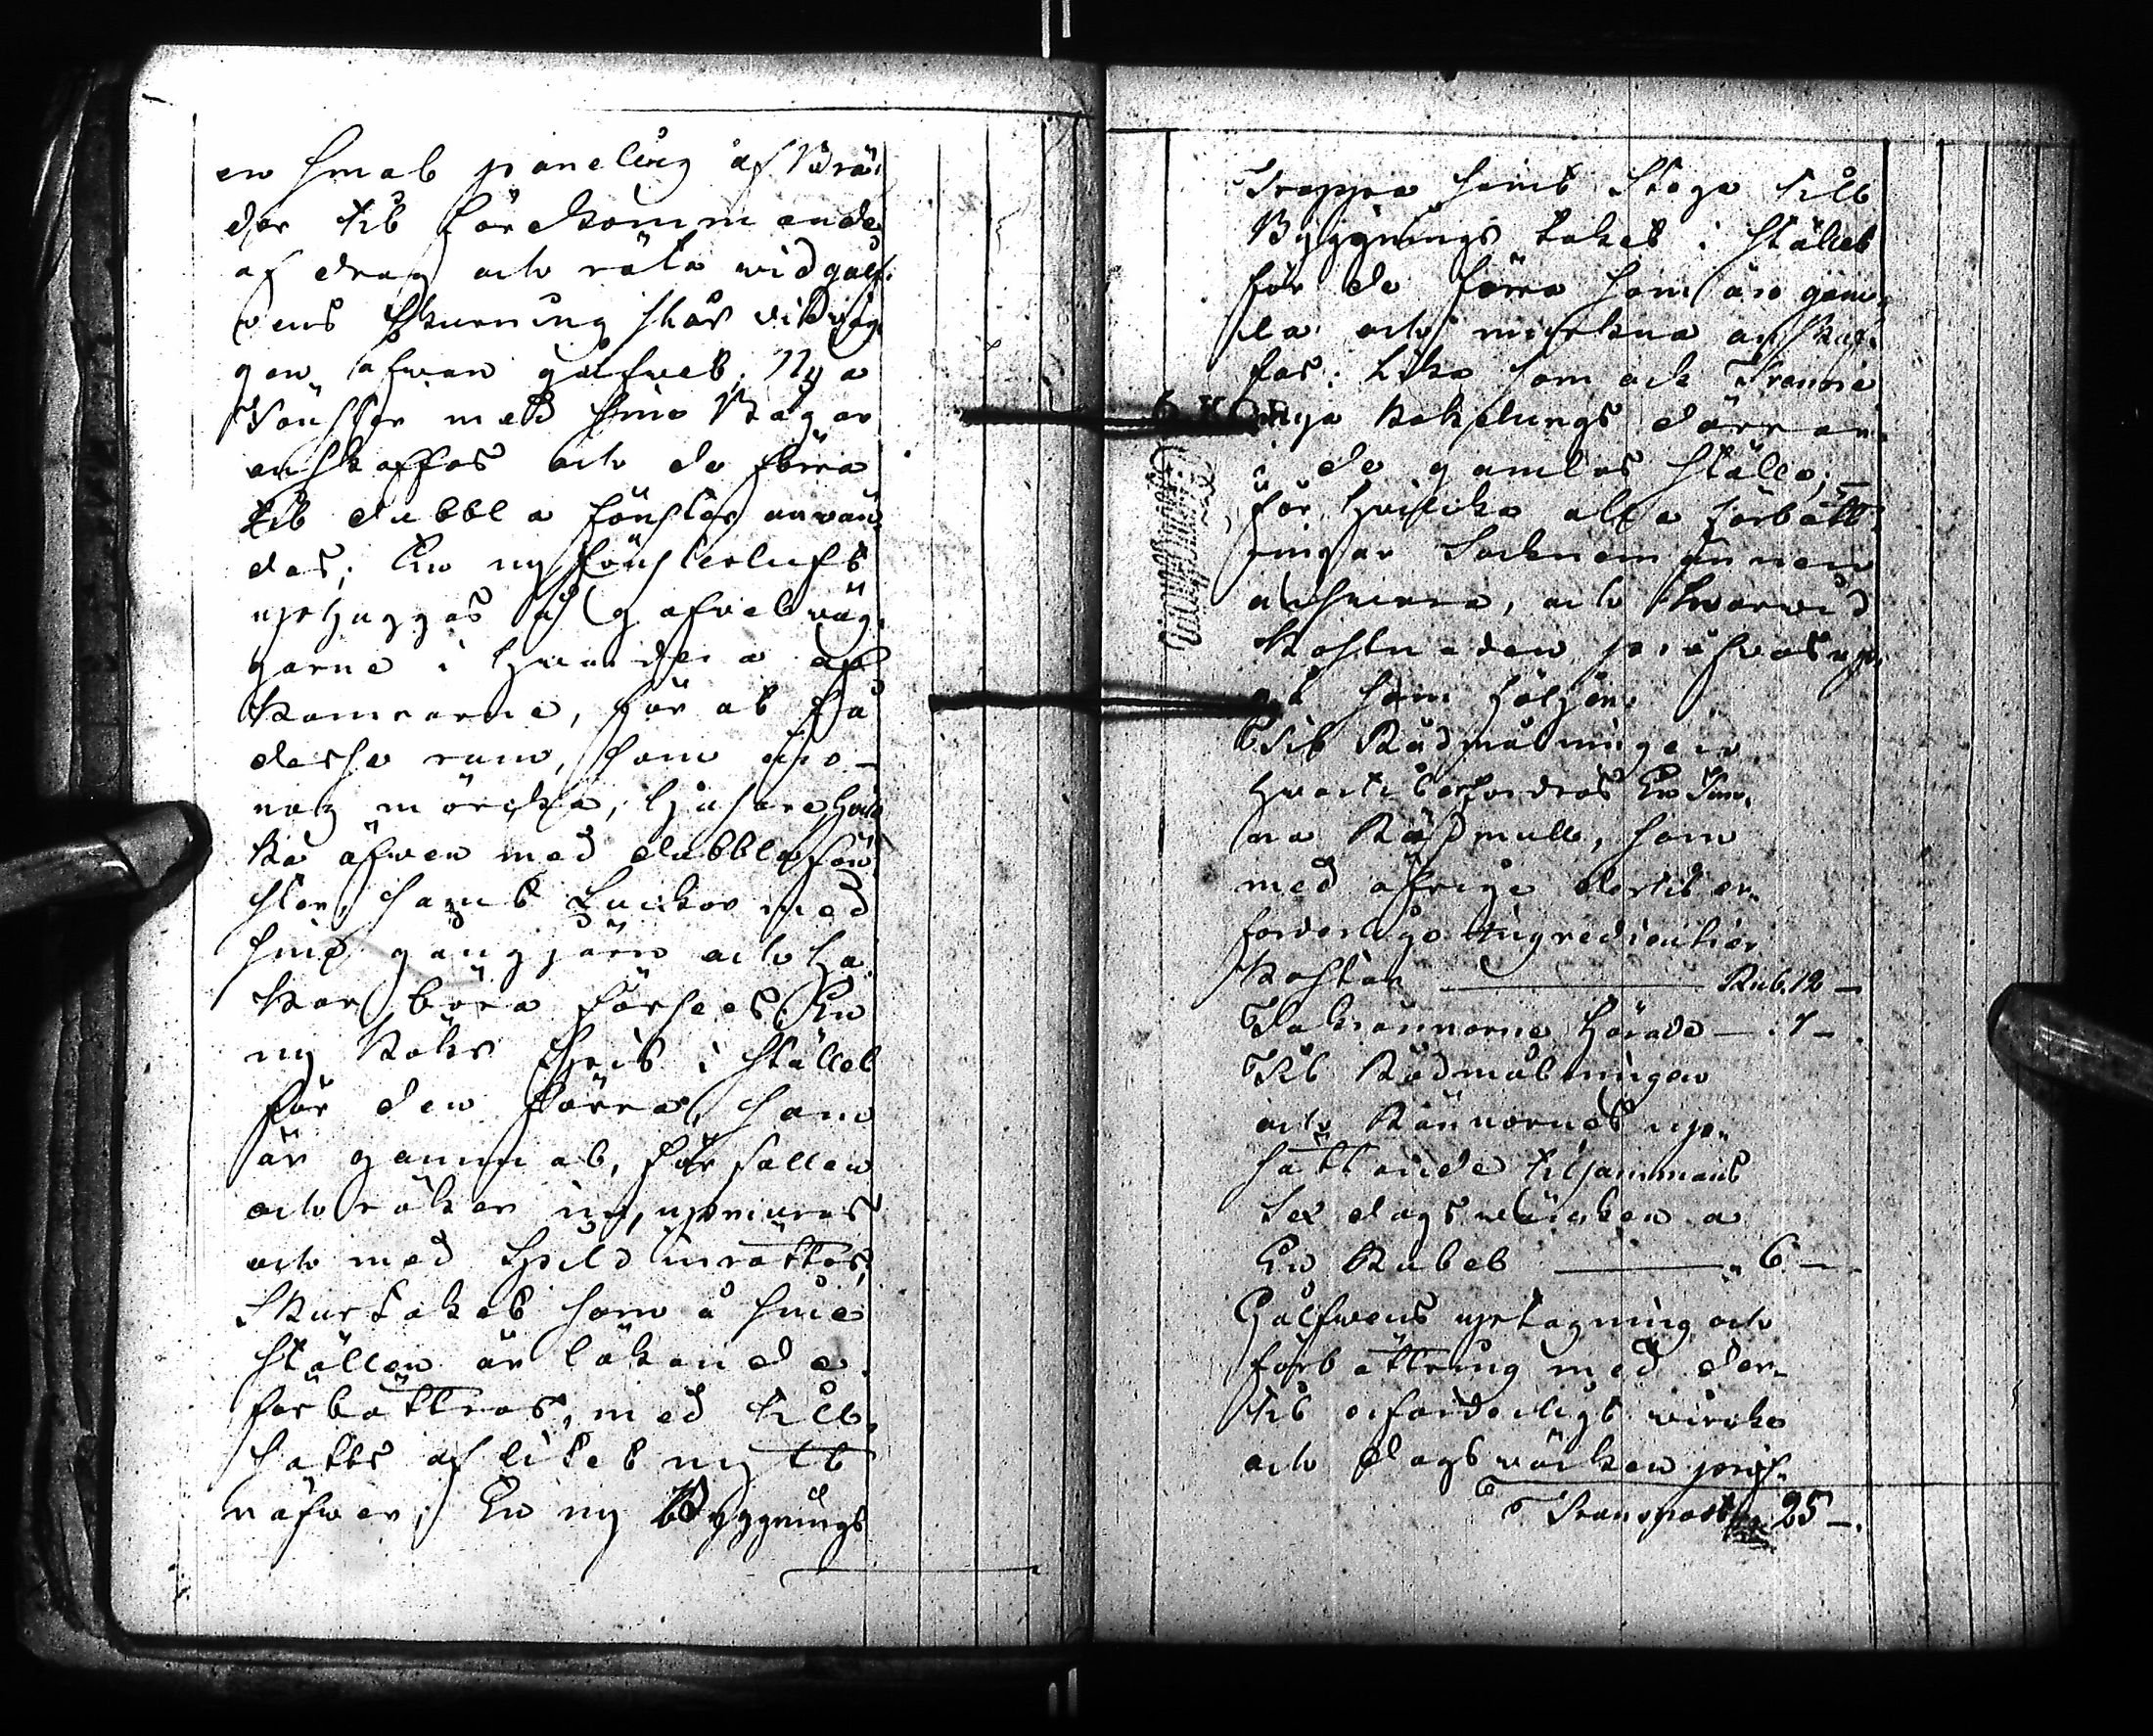 en smal paneling af Brä-
der til förekommande
af drag och röta wid golf-
wens skurning slås wid wäg-
gen ofwan golfwet; Nya
Fönster med sine Bågar
anskaffas och de förra
til dubbla fönster anwän-
das; En ny fönsterluft
uphugges å gafwelwäg-
garne i hwardera af
Kamrarne, för at få
desse rum, som äro
nog mörcka, ljusare, hwil-
ka äfwen med dubbla fön-
ster, samt Luckor med
sine gångjärn och ha-
kar böra förses; En
ny Köks spis i stället
för den förra, som
är gammal, förfallen
och röker in, upmuras
och med spield inrättas;
Skurtaket som å sine
ställen är läkande
förbättras, med till-
satts af litet nytt
näfwer; En ny Byggnings
Trappa samt Stege till
Byggnings taket i stället
för de förra som äro gam-
la och murkna anskaf-
fas; Lika som ock Trenne
nya Kakelungs dörrar
i de gamlas ställe;
för hwilcka alla förbätt-
ringar Socknemännen
answara, och hwarwid
Kostnaden pröfwas up-
gå som följer:
Til Rödmålningen
hwartil erfordras En Tun-
na Rödmull, som
med öfrige dertil er-
forderlige Ingredientier
Kostar ——— Rub. 12 —
Takrännorne Hörade — 7 —
Til Rödmålningen
och Rännornes up-
sättande tilsammans
Sex dagswärcken a
En Rubel ——— " 6 —
Golfwens uptagning och
förbättring med der-
til erforderligt wirke
och dagswärcken pröf-
Transport 25 —